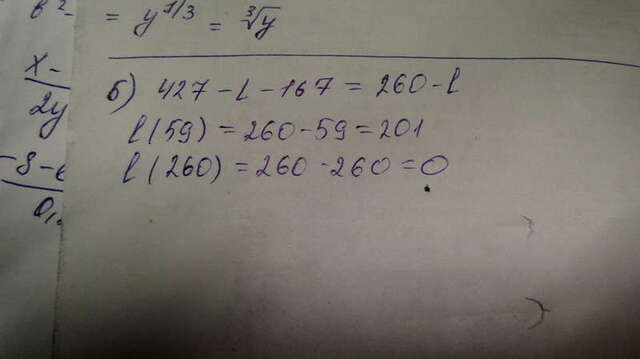 в²-
= y^1/3 = ∛y
x-
2y
-8-6
0,
б) 427 - l - 167 = 260 - l
l(59) = 260 - 59 = 201
l(260) = 260 - 260 = 0